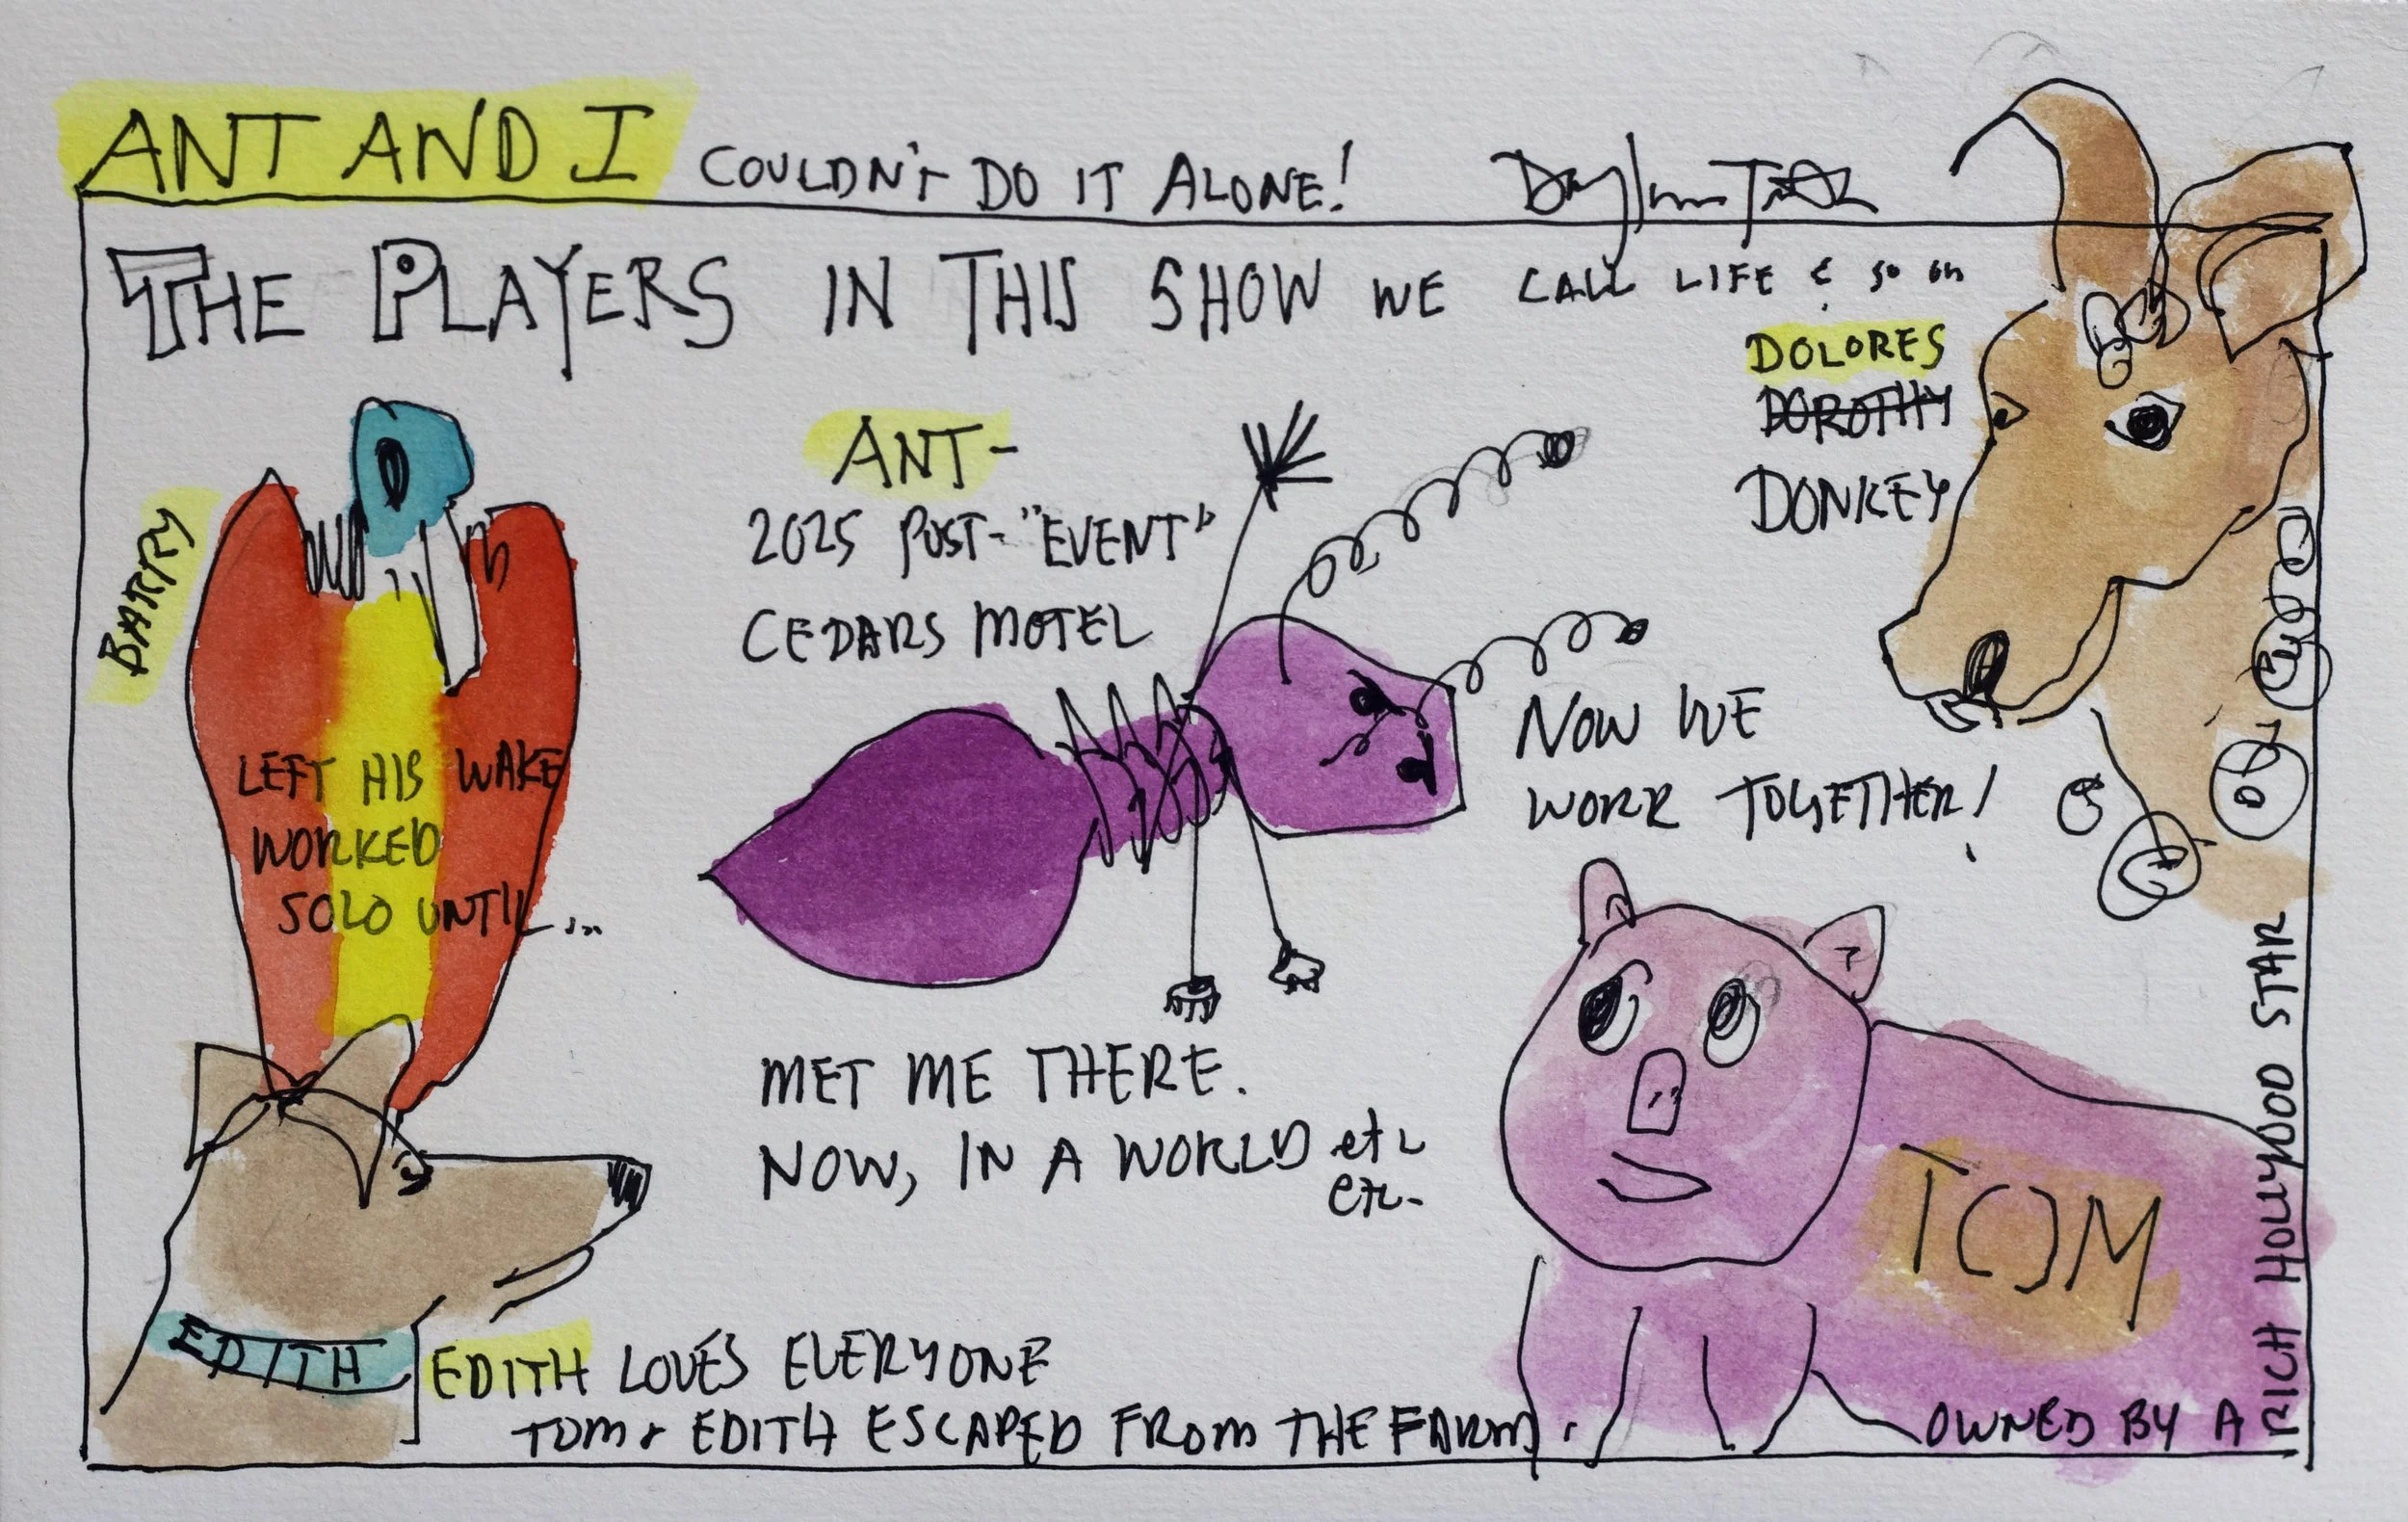 ANT AND I COULDN'T DO IT ALONE!
THE PLAYERS IN THIS SHOW WE CALL LIFE & SO ON
BARRY
LEFT HIS WAKE
WORKED
SOLO UNTIL...
ANT-
2025 POST-"EVENT"
CEDARS MOTEL
MET ME THERE.
NOW, IN A WORLD etc
etc-
DOLORES
DOROTHY
DONKEY
NOW WE
WORK TOGETHER!
EDITH
EDITH LOVES EVERYONE
TOM & EDITH ESCAPED FROM THE FARM.
TOM
OWNED BY A
RICH HOLLYWOOD STAR